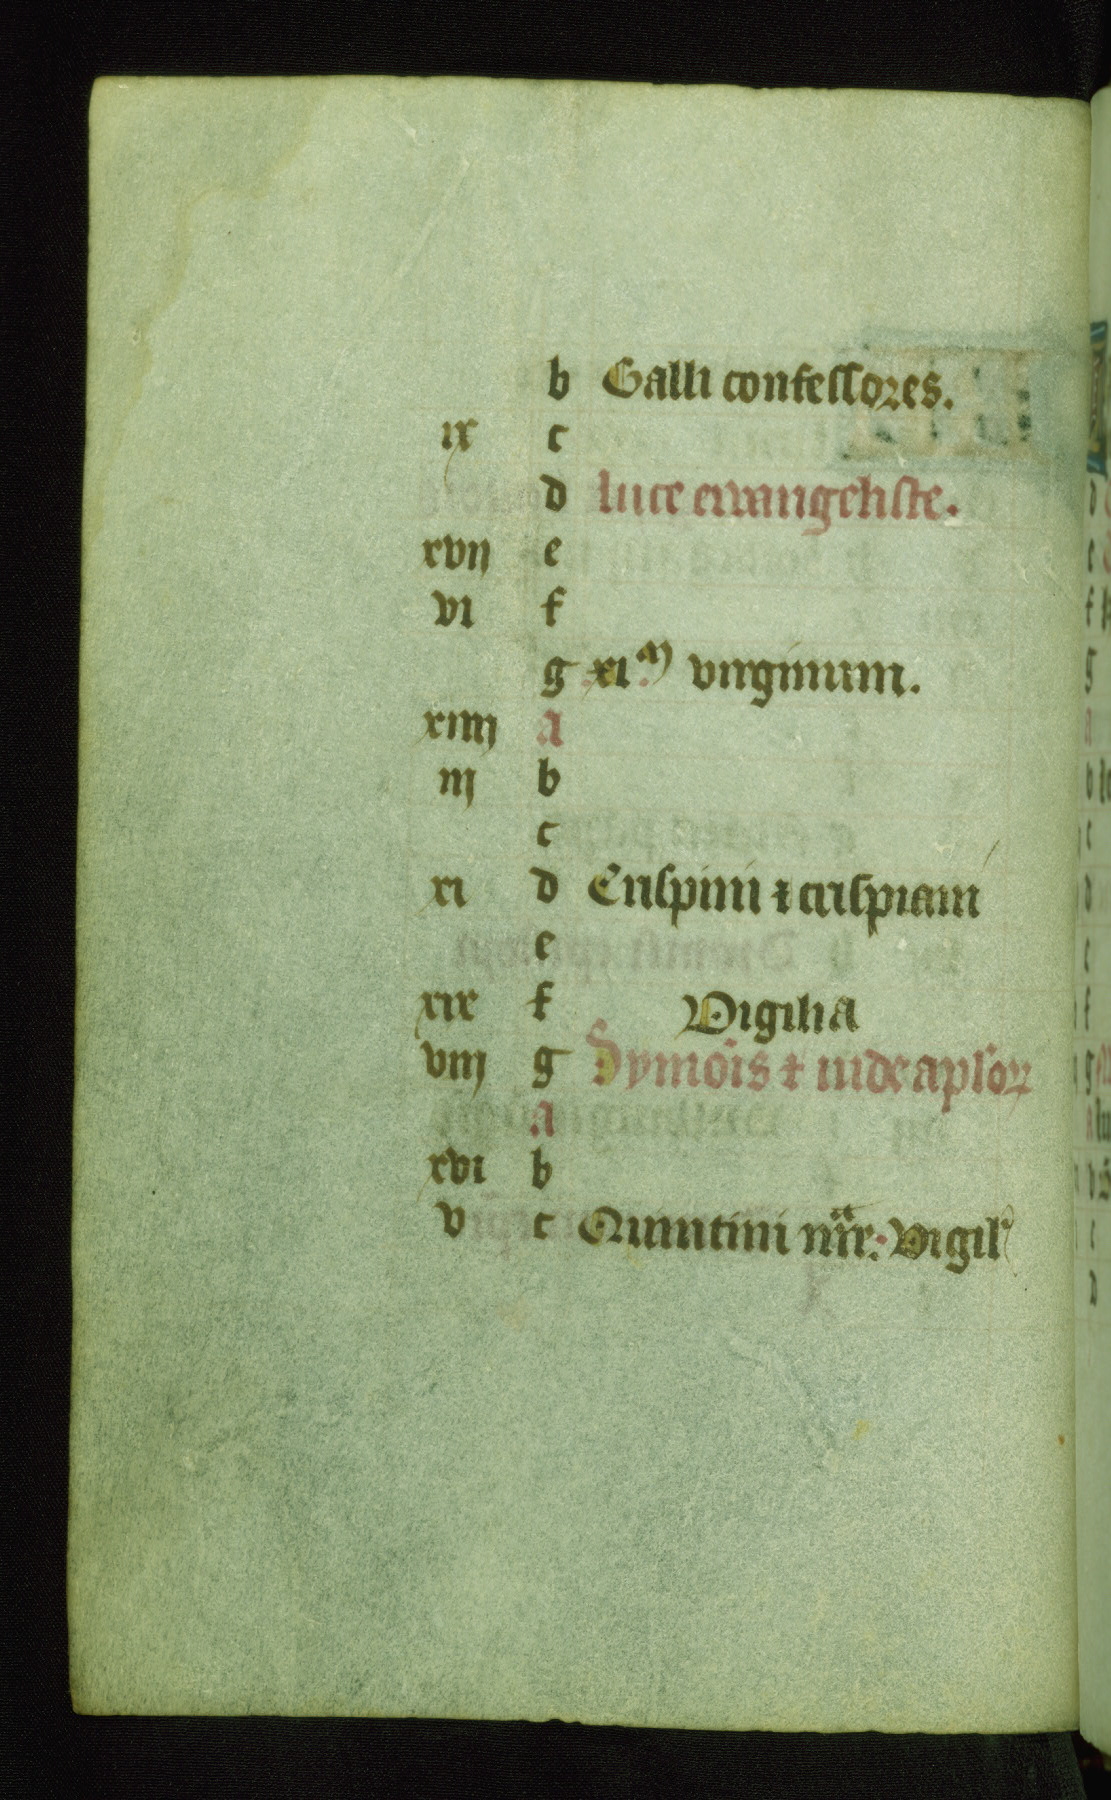 b Galli confessores.
ix c
d luce ewangeliste.
xvij e
vi f
g xi.m virginum.
xiiij a
iij b
c
xi d Crispini et crispiani
e
xix f Vigilia
viij g Symois et iude aplor
a
xvi b
v c Quintini mr̄e. Vigil'